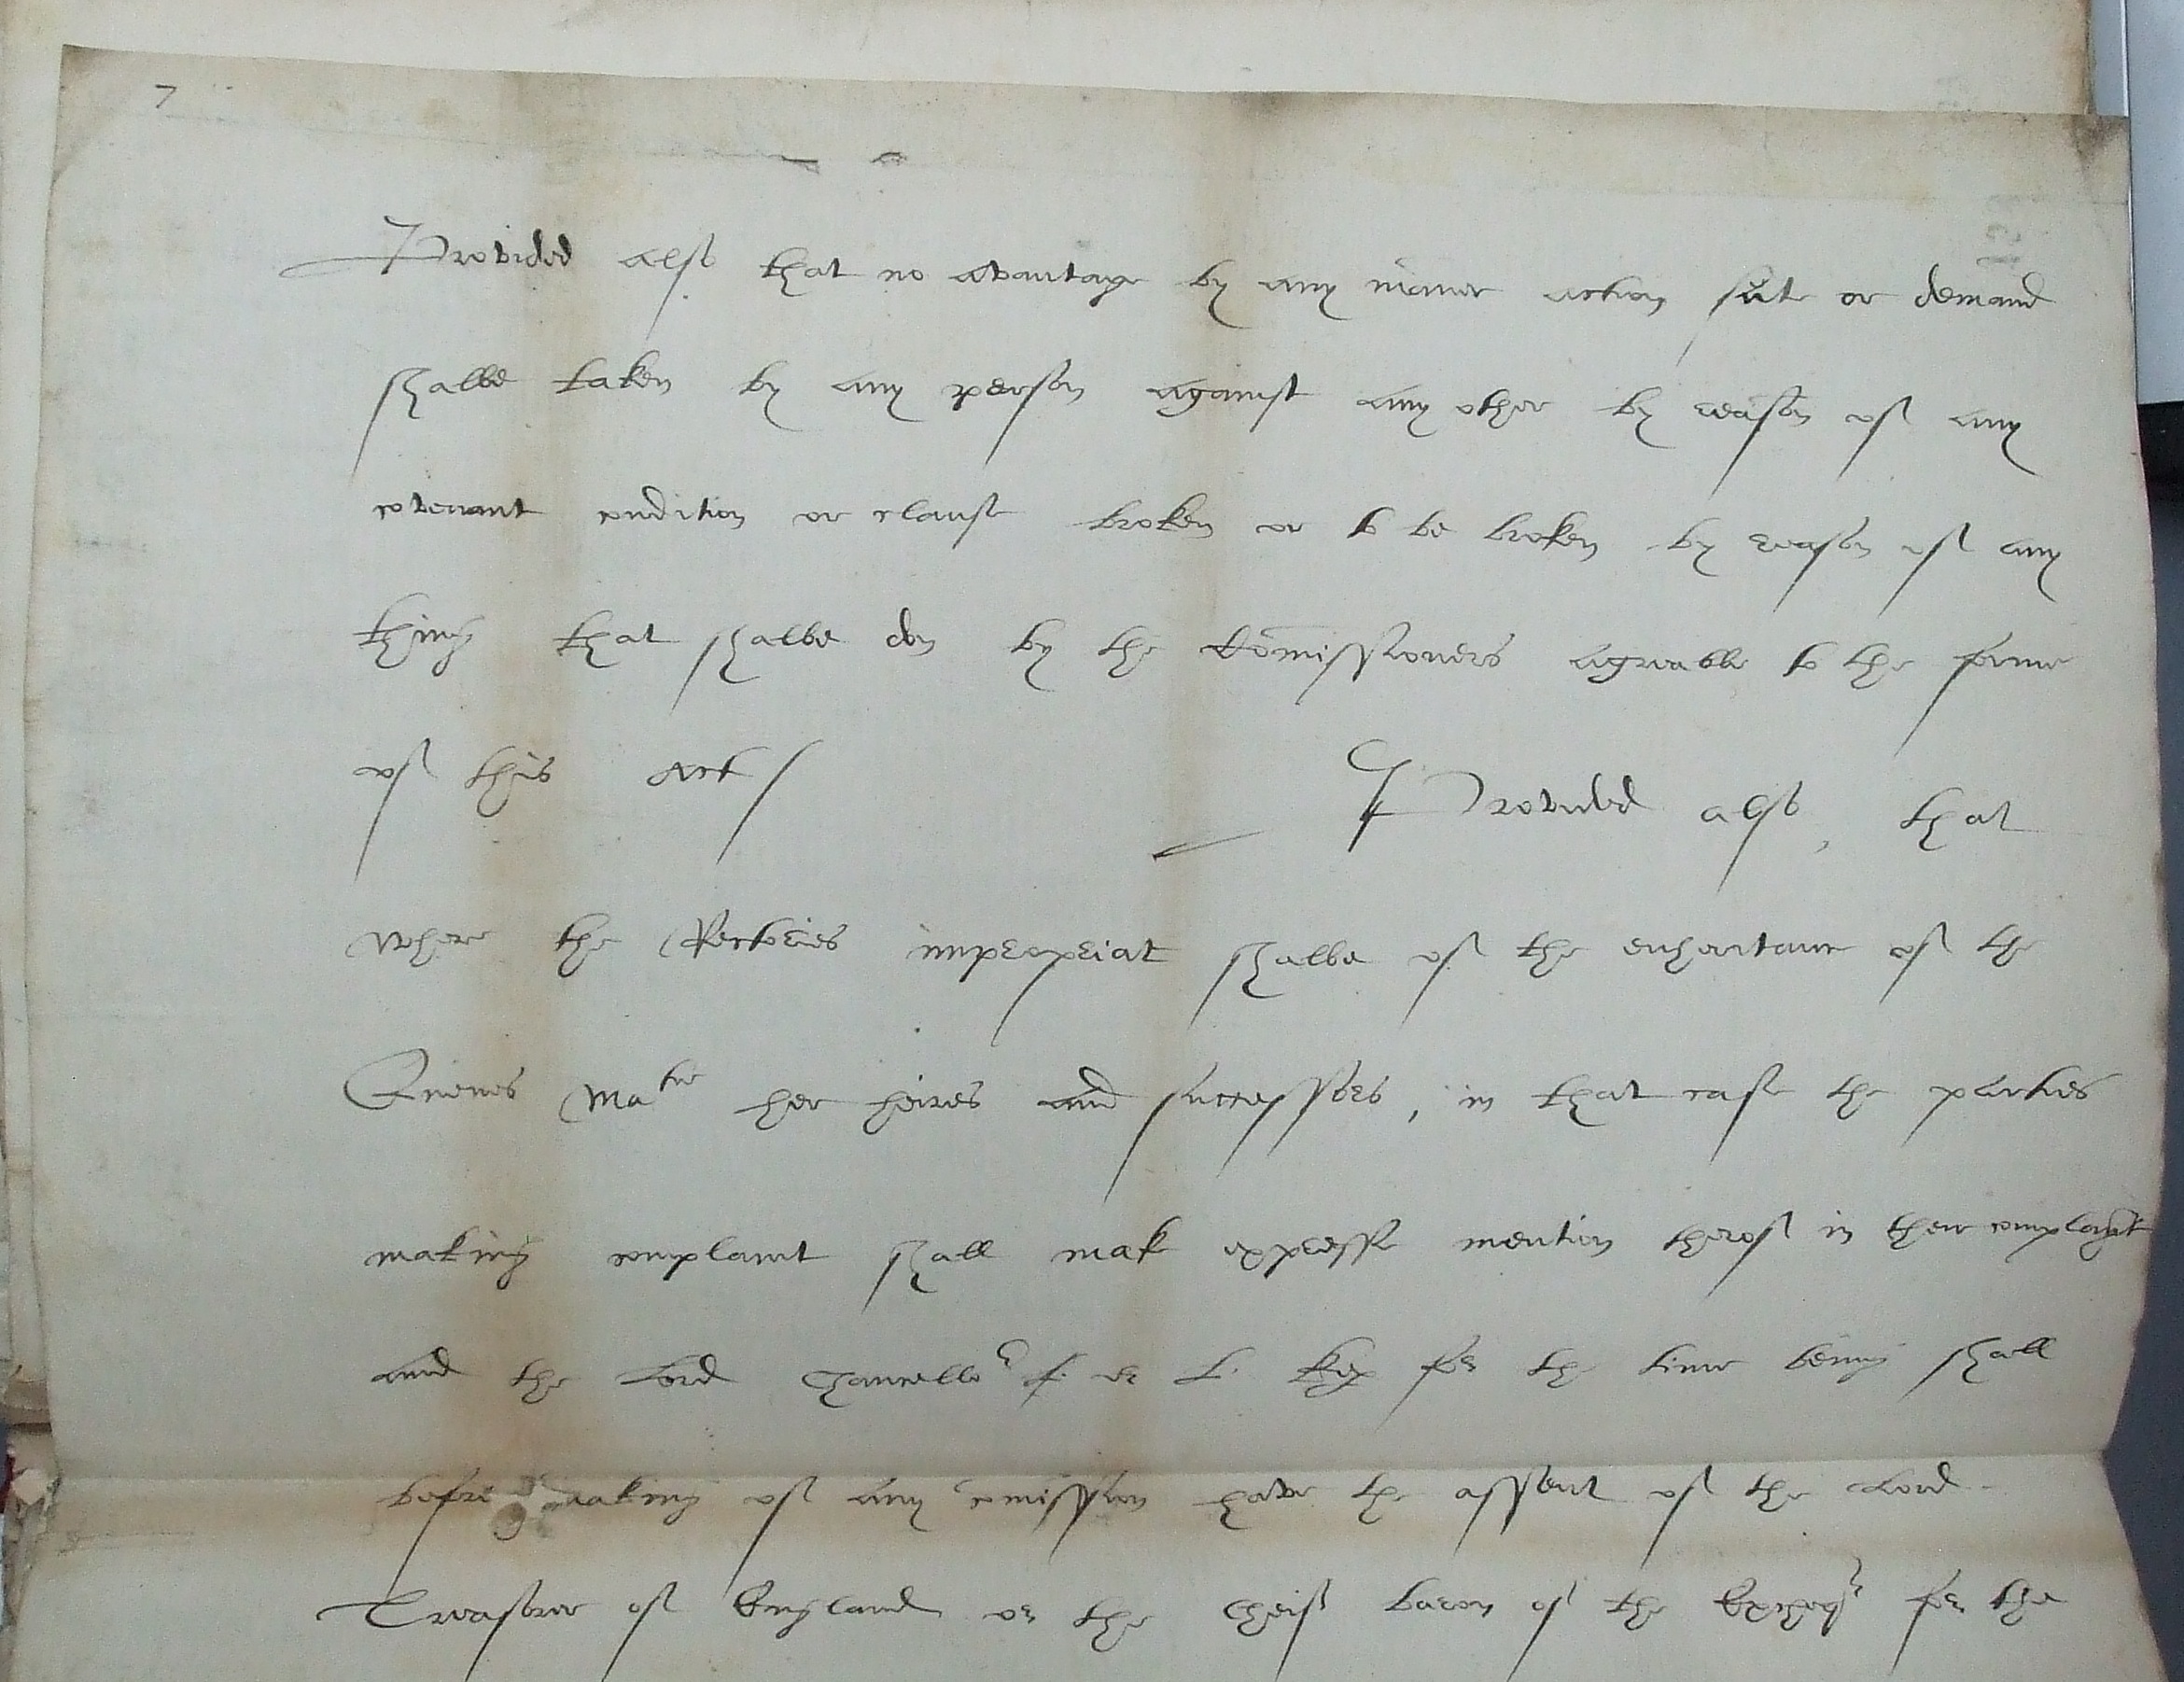 7
Provided also that no avantage by any maner action sute or demand
shalbe taken by any person against any other by reason of any
covenant condition or clause broken or to be broken by reason of any
thing that shalbe don by the Comissioners agreable to the forme
of this Act /
Provided also, that
where the Rectories impropriat shalbe of the enheritance of the
Quenes Matie her heires and successors, in that case the parties
making complaint shall mak expresse mention therof in their complaynt
and the Lord Chancellor or L. Kep for the time being shall
before making of any comission have the assent of the Lord
Treasorer of England or the Cheif baron of the Excheqr for the